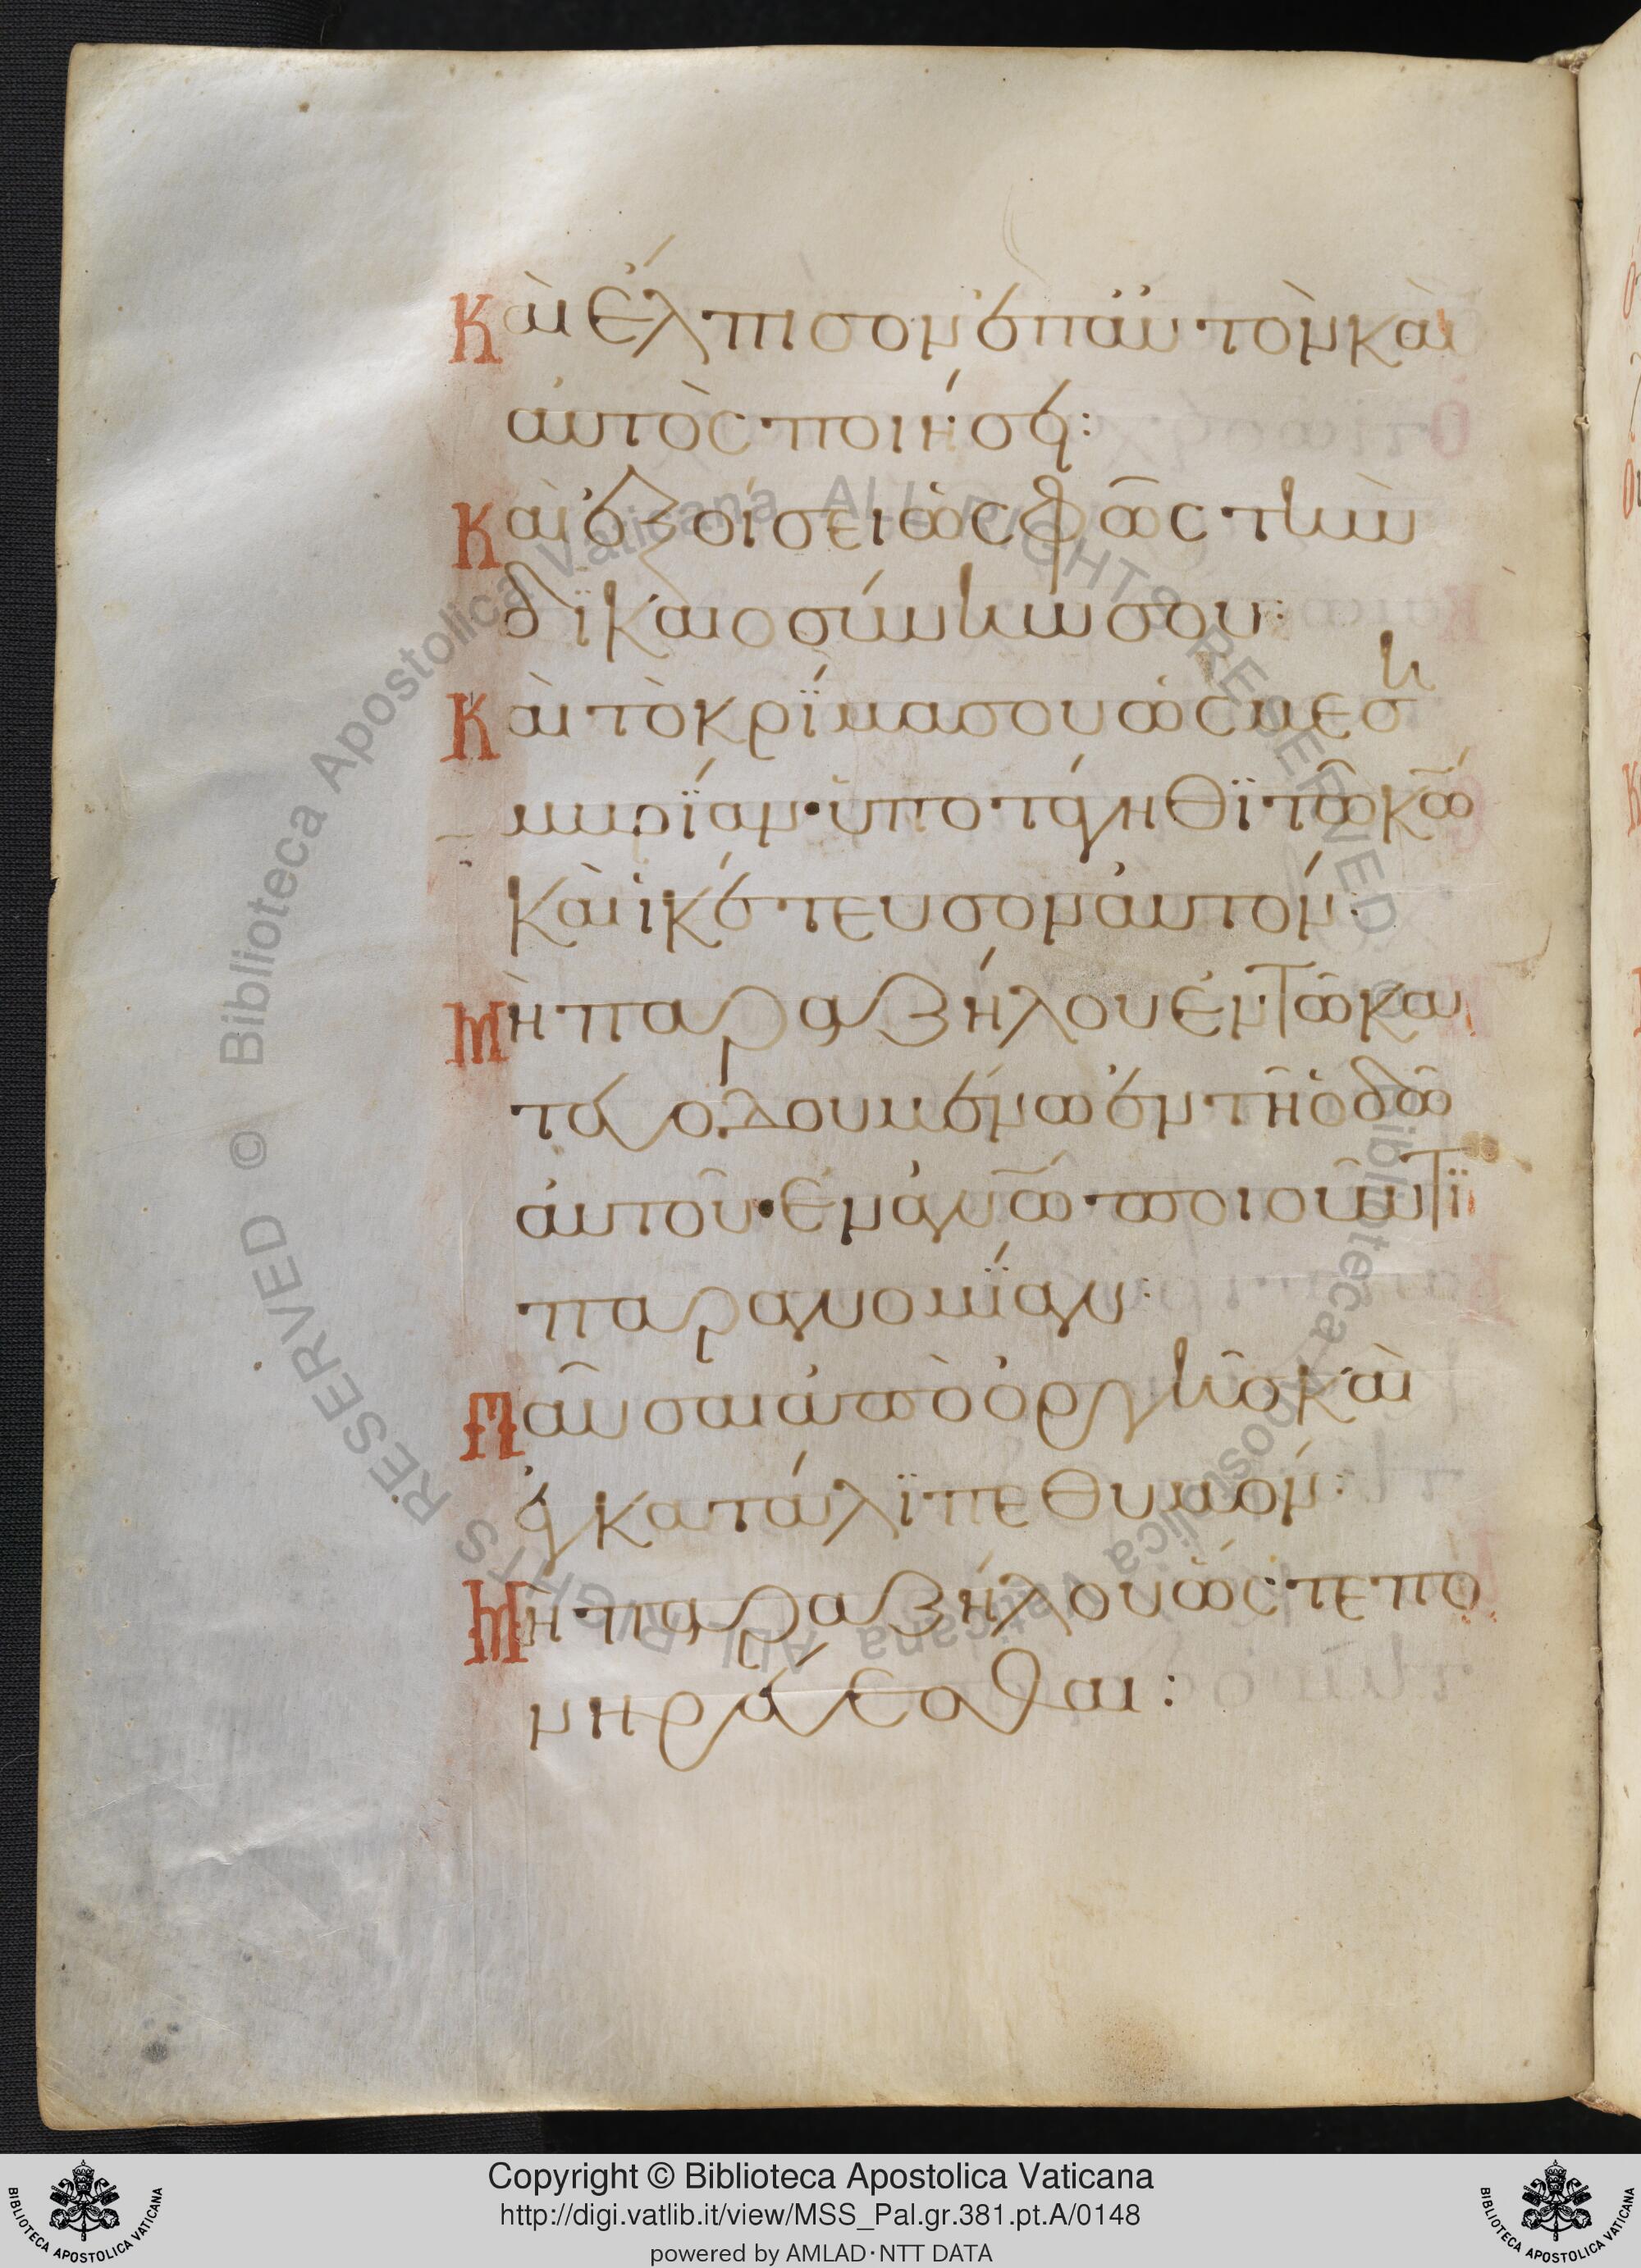 Καὶ ἔλπισον ἐπ αὐτὸν καὶ
αὐτὸς ποιήσει:
Καὶ ἐξοίσει ὡς φῶς τὴν
δϊκαιοσύνην σου:
Καὶ τὸ κρίμα σου ὡς μεση
μμρίαν· ὑποτάγηθϊ τῶ κῶ
καὶ ἱκέτευσον αὐτόν:
Μὴ παραζήλου ἐν τῶ κα
τάυοδουμένω ἐν τῆ ὁδῶ
αὐτοῦ· ἐν ανῶ· ποιοῦντϊ
παρανομίαν:
Παῦσαι ἀπὸ ὀργῆσ καὶ
ἐγκατάλϊπε θυμόν:
Μὴ παραζήλου ὥς τε πο
νηρεύεσθαι:
© Biblioteca Apostolica Vaticana ALL RIGHTS RESERVED
© Biblioteca Apostolica Vaticana ALL RIGHTS RESERVED
Copyright © Biblioteca Apostolica Vaticana
http://digi.vatlib.it/view/MSS_Pal.gr.381.pt.A/0148
powered by AMLAD·NTT DATA
BIBLIOTECA APOSTOLICA VATICANA
BIBLIOTECA APOSTOLICA VATICANA